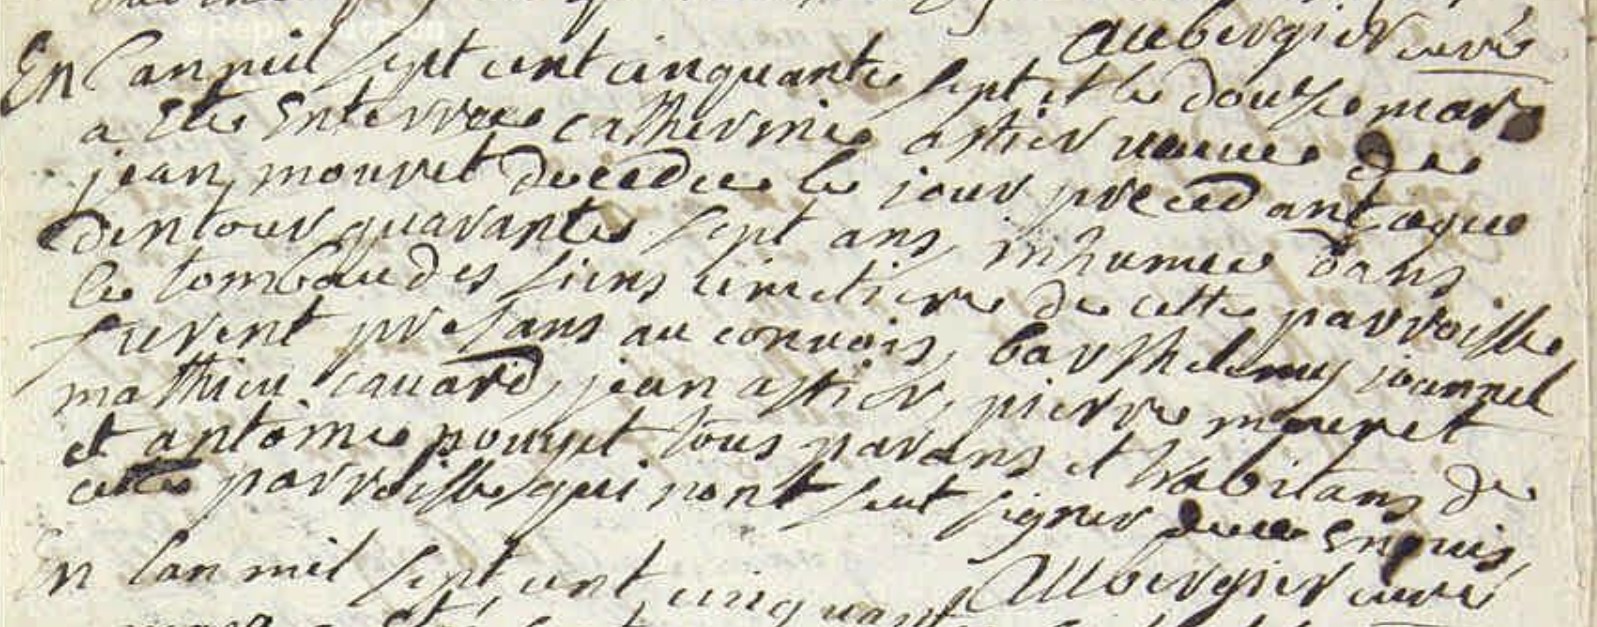 Aubergier curé
En lan mil sept cent cinquante sept et le douze mars
a ete enterree catherine astier veuve de
jean mouret decedee le jour precedant agee
dentour quarante sept ans, inhumee dans
le tombau des siens cimetiere de cette parroisse
furent presans au convois, barthelemy joannel
mathieu cauard, jean astier, pierre mouret
et antoine pouyet tous parans et habitans de
cette parroisse qui nont seut signer de ce enquis,
Aubergier curé
En lan mil sept cent cinquante